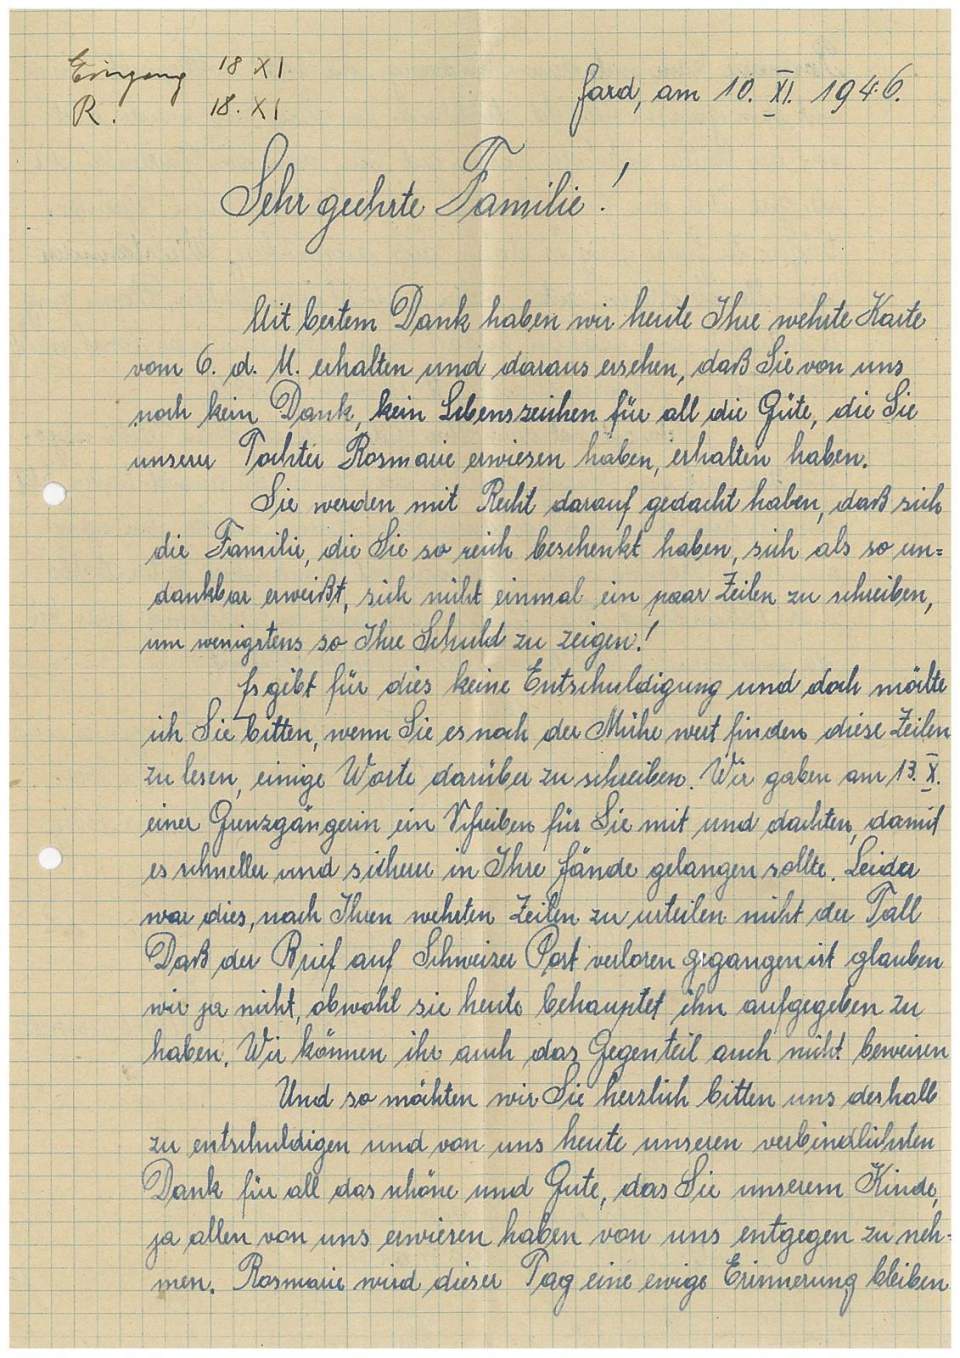 Eingang 18 XI
R. 18. XI
Hard, am 10. XI. 1946.
Sehr geehrte Familie!
Mit bestem Dank haben wir heute Ihre wehrte Karte
vom 6. d. M. erhalten und daraus ersehen, daß Sie von uns
noch kein Dank, kein Lebenszeichen für all die Güte, die Sie
unserer Tochter Rosmarie erwiesen haben, erhalten haben.
Sie werden mit Recht darauf gedacht haben, daß sich
die Familie, die Sie so reich beschenkt haben, sich als so un=
dankbar erweißt, sich nicht einmal ein paar Zeilen zu schreiben,
um wenigstens so Ihre Schuld zu zeigen!
Es gibt für dies keine Entschuldigung und doch möchte
ich Sie bitten, wenn Sie es noch der Mühe wert finden diese Zeilen
zu lesen, einige Worte darüber zu schreiben. Wir gaben am 13. X.
einer Grenzgängerin ein Schreiben für Sie mit und dachten, damit
es schneller und sicherer in Ihre Hände gelangen sollte. Leider
war dies, nach Ihren wehrten Zeilen zu urteilen nicht der Fall
Daß der Brief auf Schweizer Post verloren gegangen ist glauben
wir ja nicht, obwohl sie heute behauptet ihn aufgegeben zu
haben. Wir können ihr auch das Gegenteil auch nicht beweisen
Und so möchten wir Sie herzlich bitten uns deshalb
zu entschuldigen und von uns heute unseren verbindlichsten
Dank für all das schöne und Gute, das Sie unserem Kinde,
ja allen von uns erwiesen haben von uns entgegen zu neh-
men. Rosmarie wird dieser Tag eine ewige Erinnerung bleiben